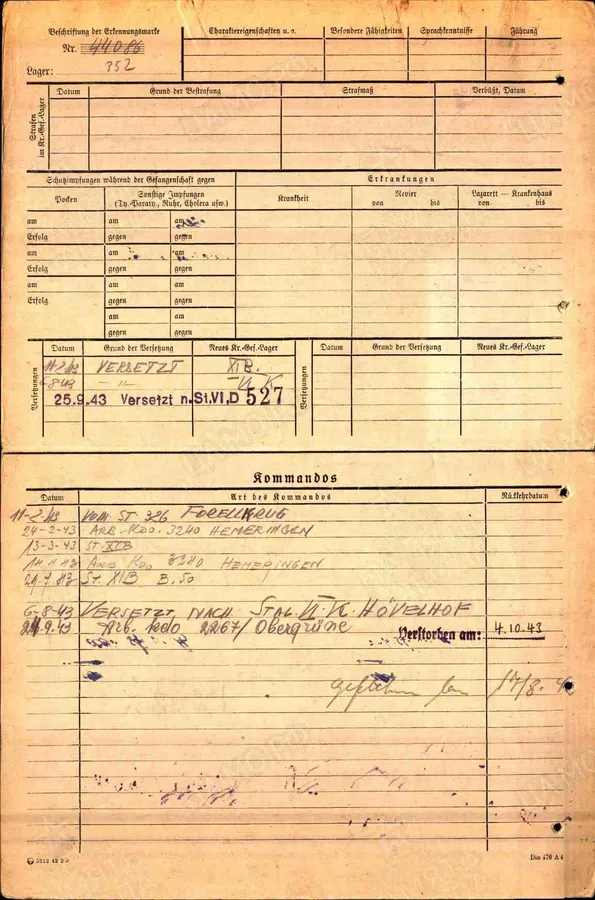 Beschriftung der Erkennungsmarke
Nr. 44086
Lager: 352
Charaktereigenschaften u. a.
Besondere Fähigkeiten
Sprachkenntnisse
Führung
Strafen im Kr.-Gef.-Lager
Datum
Grund der Bestrafung
Strafmaß
Verbüßt, Datum
Schutzimpfungen während der Gefangenschaft gegen
Erkrankungen
Pocken
Sonstige Impfungen
(Ty.-Paraty., Ruhr, Cholera usw.)
Krankheit
Revier
von bis
Lazarett — Krankenhaus
von bis
am am am
Erfolg gegen gegen
am am am
Erfolg gegen gegen
am am am
Erfolg gegen gegen
am am
gegen gegen
Versetzungen
Datum Grund der Versetzung Neues Kr.-Gef.-Lager
11-2-43 VERSETZT XIB.
6-8-43 — " — VI K
25.9.43 Versetzt n.St.VI,D 527
Versetzungen
Datum Grund der Versetzung Neues Kr.-Gef.-Lager
Kommandos
Datum Art des Kommandos Rückkehrdatum
11-2-43 VOM ST 326 FORELLKRUG
24-2-43 ARB. KDO. 3240 HEMERINGEN
13-3-43 ST. XIB
ARB KDO 3240 HEMERINGEN
ST. XIB B.50
6-8-43 VERSETZT NACH STAL. VI-VK. HÖVELHOF
9.43 Arb. kdo 2267/ Obergrüne Verstorben am: 4.10.43
17/8.
Din 476 A 4